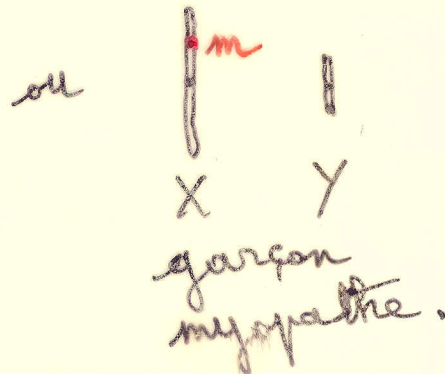 ou m
X Y
garçon
myopathe.